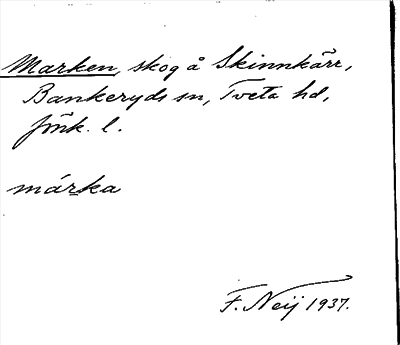 Marken, skog å Skinnkärr,
Bankeryds sn, Tveta hd,
Jönk. l.
márka
F. Neij 1937.